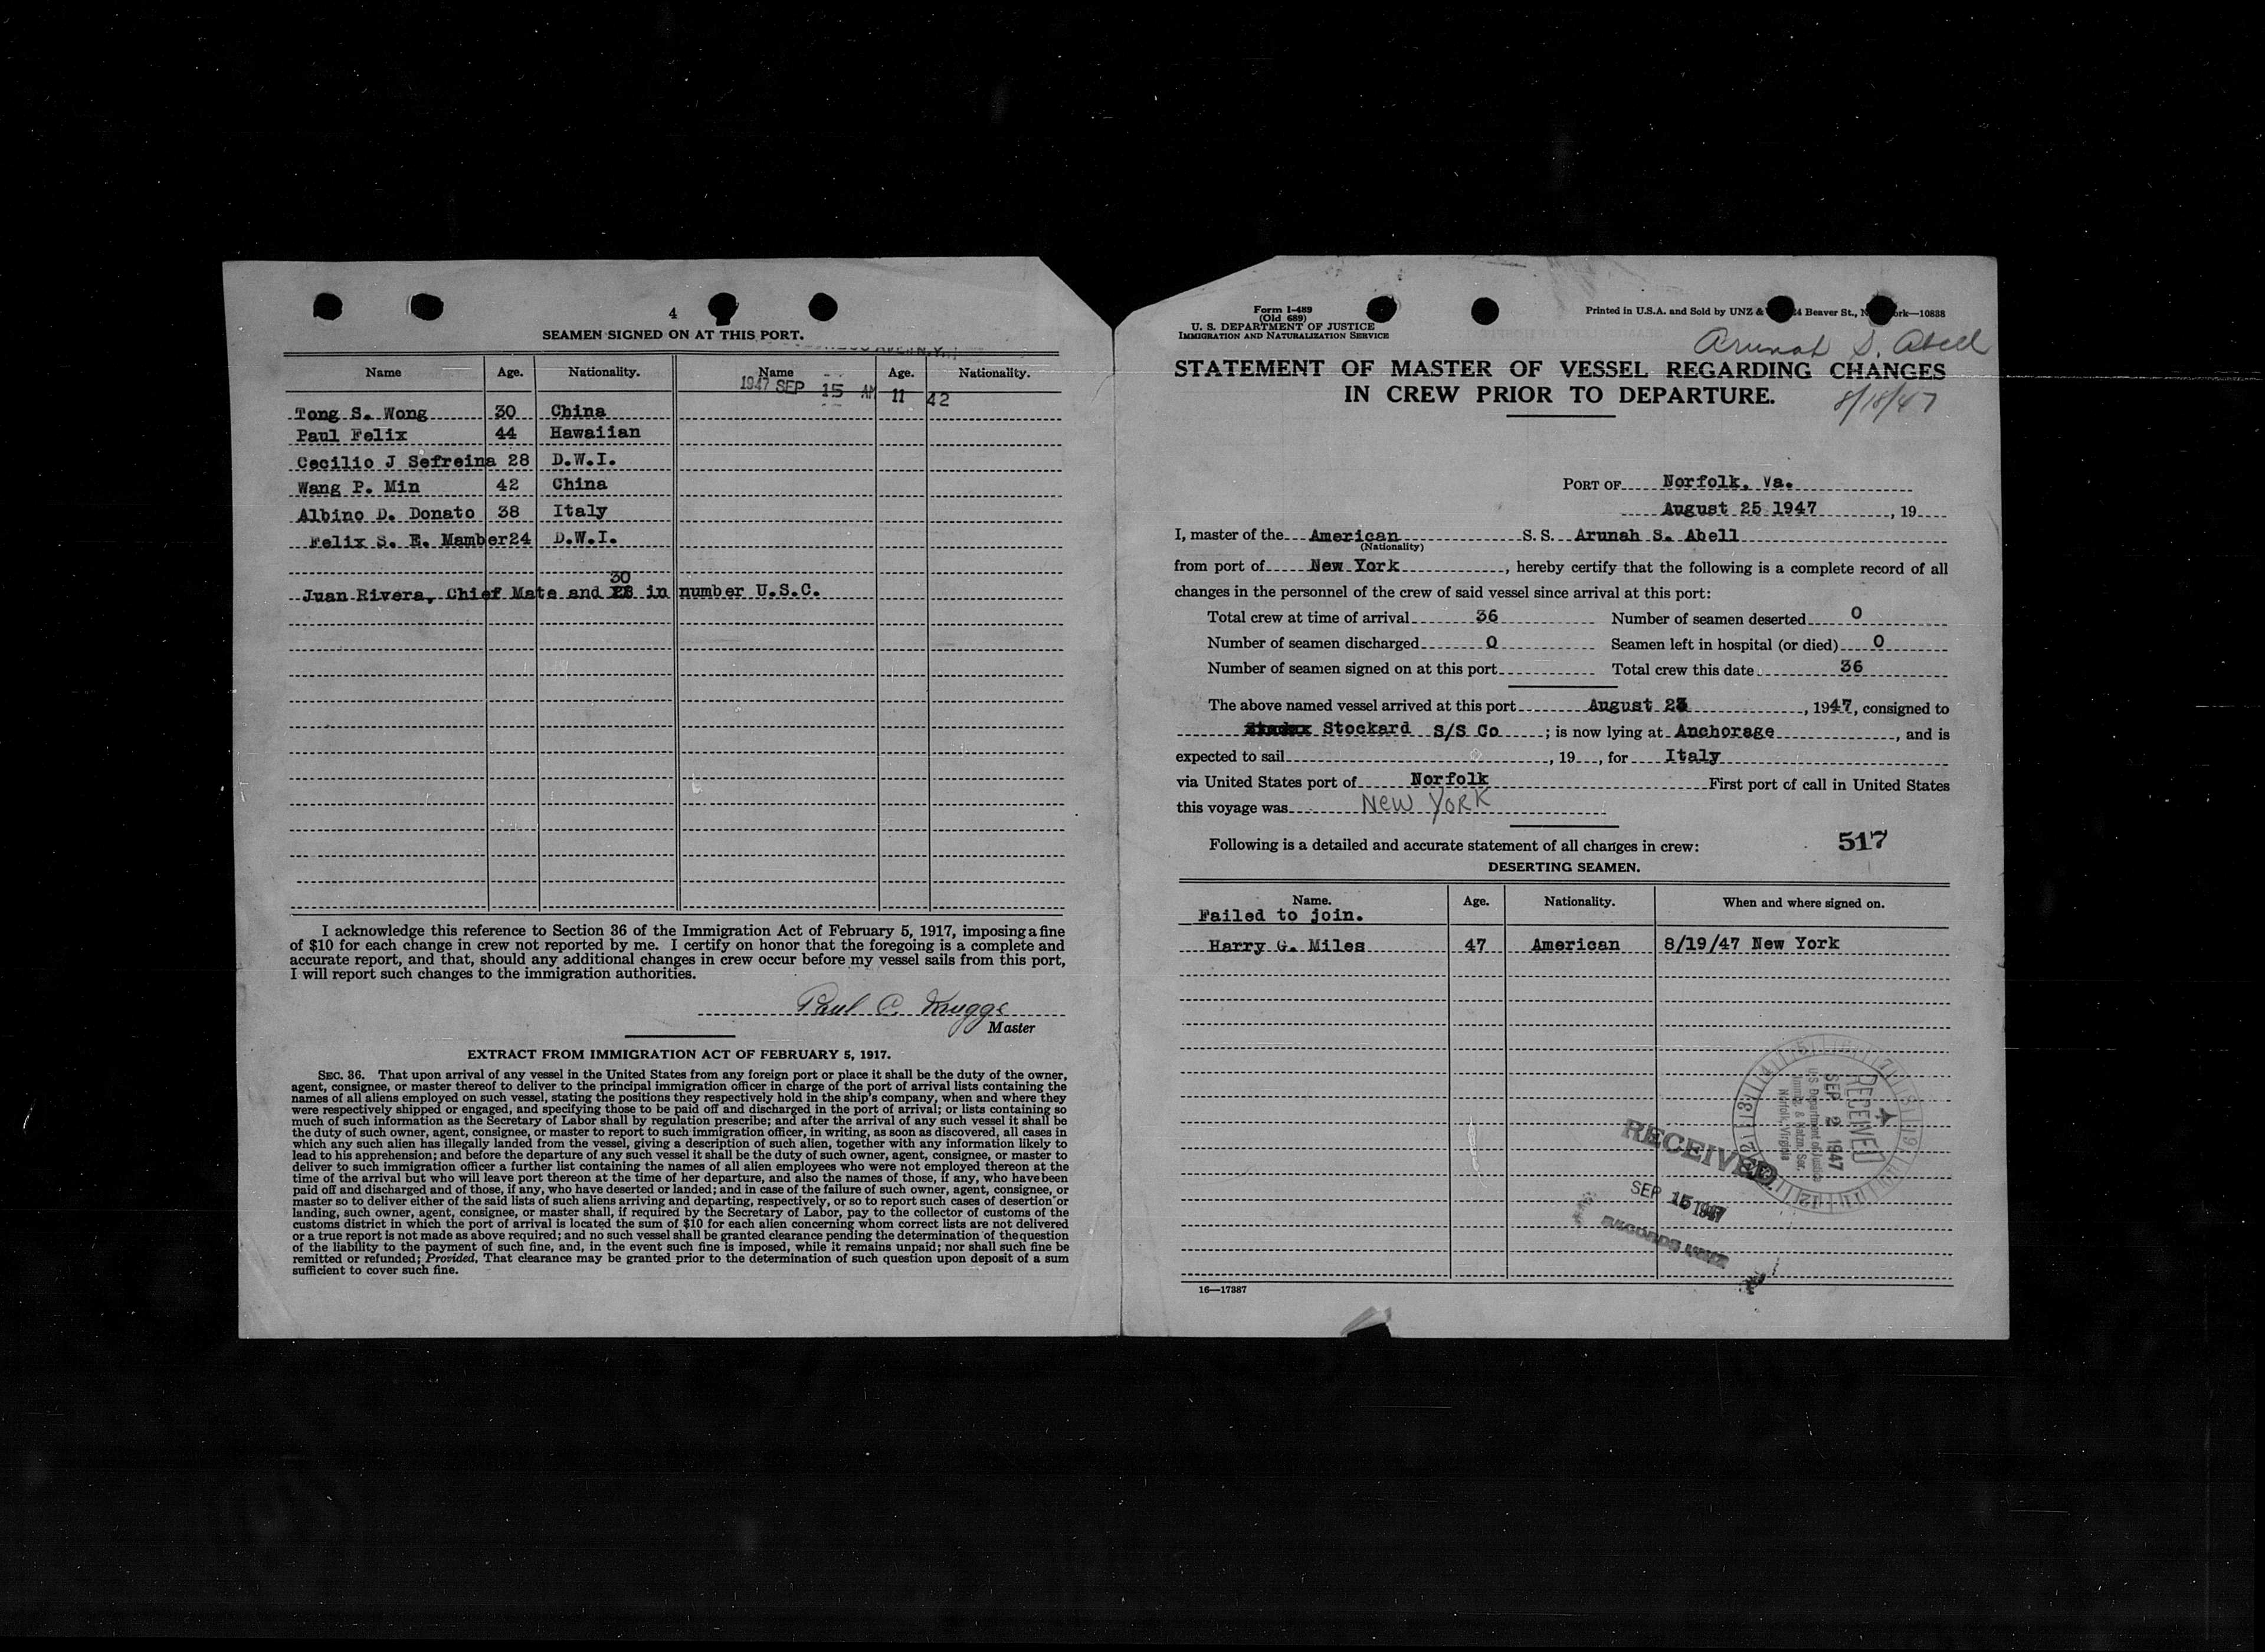 4
SEAMEN SIGNED ON AT THIS PORT.
Name Age. Nationality. Name Age. Nationality.
1947 SEP 15 AM 11 42
Tong S. Wong 30 China
Paul Felix 44 Hawaiian
Cecilio J Sefreina 28 D.W.I.
Wang P. Min 42 China
Albino D. Donato 38 Italy
Felix S. E. Mamber 24 D.W.I.
30
Juan Rivera, Chief Mate and in number U.S.C.
I acknowledge this reference to Section 36 of the Immigration Act of February 5, 1917, imposing a fine
of $10 for each change in crew not reported by me. I certify on honor that the foregoing is a complete and
accurate report, and that, should any additional changes in crew occur before my vessel sails from this port,
I will report such changes to the immigration authorities.
Paul C.
Master
EXTRACT FROM IMMIGRATION ACT OF FEBRUARY 5, 1917.
SEC. 36. That upon arrival of any vessel in the United States from any foreign port or place it shall be the duty of the owner,
agent, consignee, or master thereof to deliver to the principal immigration officer in charge of the port of arrival lists containing the
names of all aliens employed on such vessel, stating the positions they respectively hold in the ship's company, when and where they
were respectively shipped or engaged, and specifying those to be paid off and discharged in the port of arrival; or lists containing so
much of such information as the Secretary of Labor shall by regulation prescribe; and after the arrival of any such vessel it shall be
the duty of such owner, agent, consignee, or master to report to such immigration officer, in writing, as soon as discovered, all cases in
which any such alien has illegally landed from the vessel, giving a description of such alien, together with any information likely to
lead to his apprehension; and before the departure of any such vessel it shall be the duty of such owner, agent, consignee, or master to
deliver to such immigration officer a further list containing the names of all alien employees who were not employed thereon at the
time of the arrival but who will leave port thereon at the time of her departure, and also the names of those, if any, who have been
paid off and discharged and of those, if any, who have deserted or landed; and in case of the failure of such owner, agent, consignee, or
master so to deliver either of the said lists of such aliens arriving and departing, respectively, or so to report such cases of desertion or
landing, such owner, agent, consignee, or master shall, if required by the Secretary of Labor, pay to the collector of customs of the
customs district in which the port of arrival is located the sum of $10 for each alien concerning whom correct lists are not delivered
or a true report is not made as above required; and no such vessel shall be granted clearance pending the determination of the question
of the liability to the payment of such fine, and, in the event such fine is imposed, while it remains unpaid; nor shall such fine be
remitted or refunded; Provided, That clearance may be granted prior to the determination of such question upon deposit of a sum
sufficient to cover such fine.
Form I-489
(Old 689)
U. S. DEPARTMENT OF JUSTICE
IMMIGRATION AND NATURALIZATION SERVICE
Printed in U.S.A. and Sold by UNZ & Beaver St., 10838
Arunah S. Abell
STATEMENT OF MASTER OF VESSEL REGARDING CHANGES
IN CREW PRIOR TO DEPARTURE.
8/18/47
PORT OF Norfolk, Va.
August 25 1947, 19
I, master of the American S. S. Arunah S. Abell
(Nationality)
from port of New York, hereby certify that the following is a complete record of all
changes in the personnel of the crew of said vessel since arrival at this port:
Total crew at time of arrival 36 Number of seamen deserted 0
Number of seamen discharged 0 Seamen left in hospital (or died) 0
Number of seamen signed on at this port Total crew this date 36
The above named vessel arrived at this port August 23, 1947, consigned to
Stockard S/S Co; is now lying at Anchorage, and is
expected to sail, 19, for Italy
via United States port of Norfolk First port of call in United States
this voyage was NEW YORK
Following is a detailed and accurate statement of all changes in crew: 517
DESERTING SEAMEN.
Name. Age. Nationality. When and where signed on.
Failed to join.
Harry G. Miles 47 American 8/19/47 New York
RECEIVED
SEP 2 1947
U.S. Department of Justice
Immig. & Natzn. Ser.
Norfolk, Virginia
RECEIVED
SEP 15 1947
RECORDS UNIT
16—17387